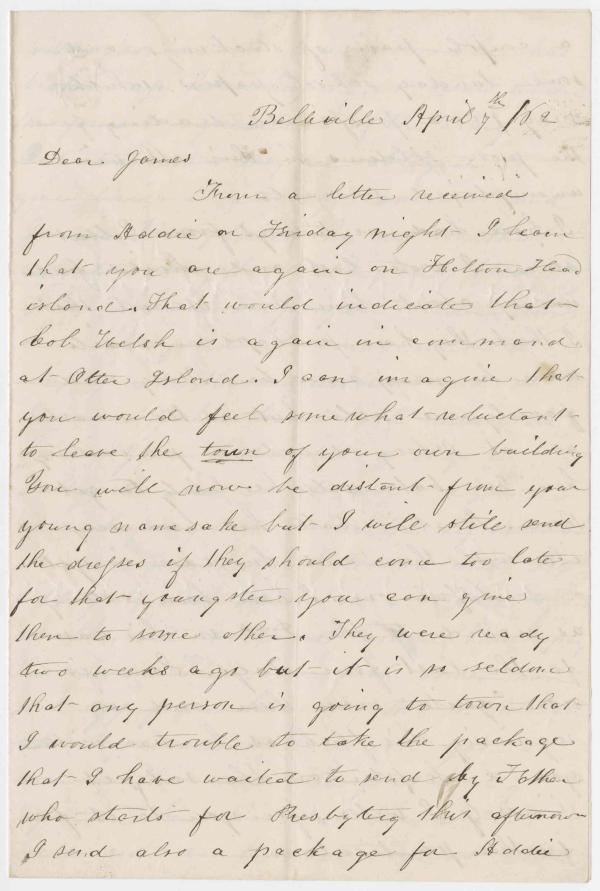 Belleville April 7th /62
Dear James
From a letter received
from Addie on Friday night I learn
that you are again on Hilton Head
island. That would indicate that
Col Welsh is again in command
at Otter Island. I can imagine that
you would feel somewhat reluctant
to leave the town of your own building
You will now be distant from your
young namesake but I will still send
the dresses if they should come too late
for that youngster you can give
them to some other. They were ready
two weeks ago but it is so seldom
that any person is going to town that
I would trouble to take the package
that I have waited to send by Father
who starts for Presbytery this afternoon
I send also a package for Addie